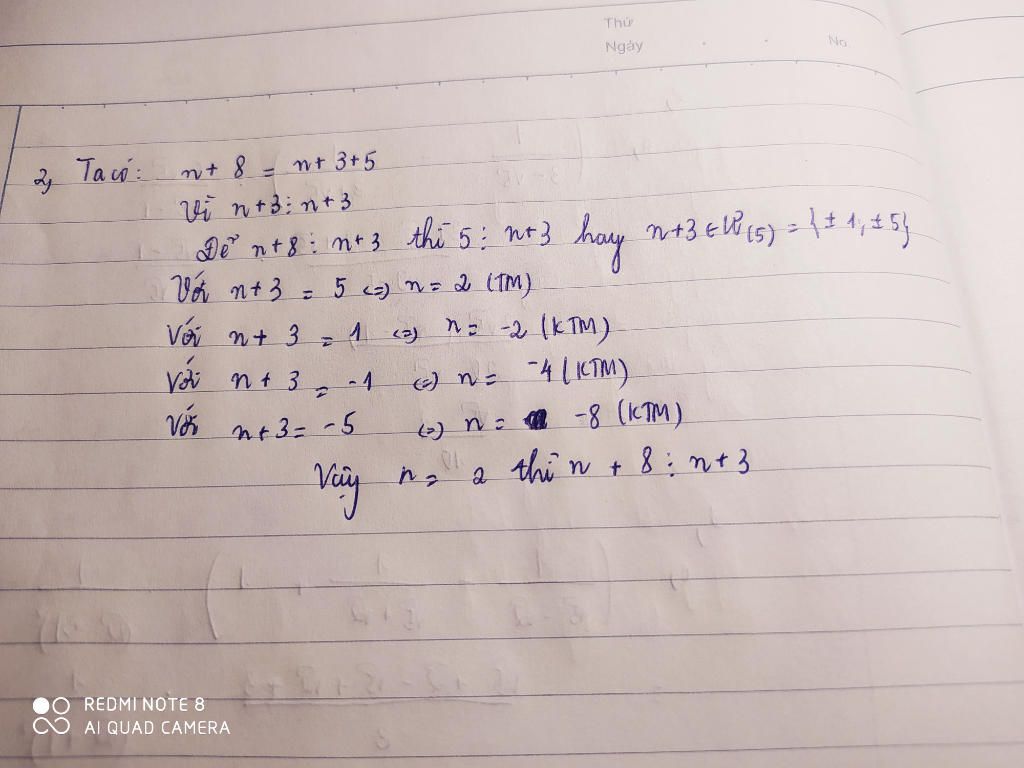 Thứ
Ngày . . No.
2, Ta có: n + 8 = n + 3 + 5
Vì n+3 ⋮ n+3
Để n+8 ⋮ n+3 thì 5 ⋮ n+3 hay n+3 ∈ Ư(5) = {± 1; ± 5}
Với n+3 = 5 <=> n = 2 (TM)
Với n + 3 = 1 <=> n = -2 (KTM)
Với n + 3 = -1 <=> n = -4 (KTM)
Với n+3 = -5 <=> n = -8 (KTM)
Vậy n = 2 thì n + 8 ⋮ n+3
REDMI NOTE 8
AI QUAD CAMERA